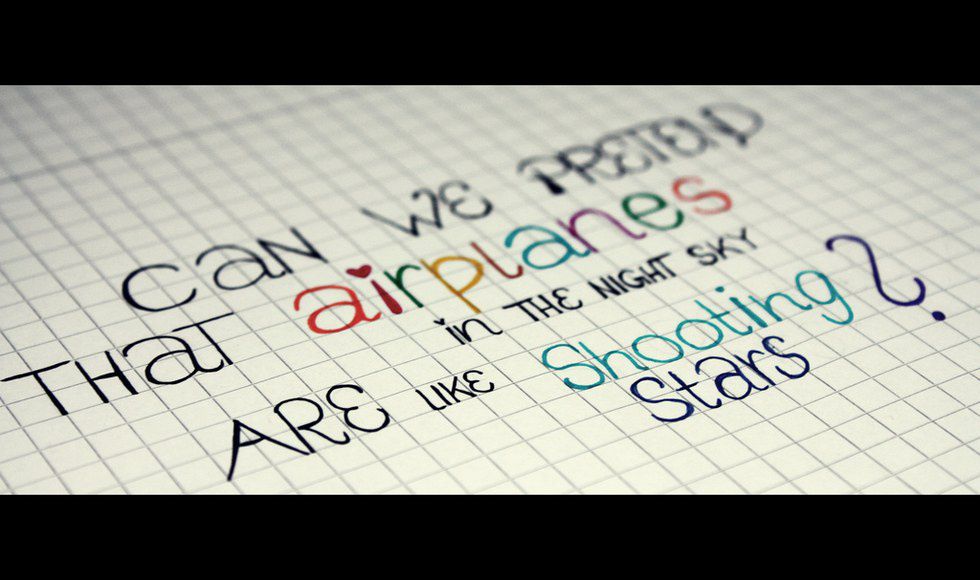 CaN WE PRETEND
THaT airplanes
in THE NIGHT SKY
ARE LIKE Shooting
Stars?